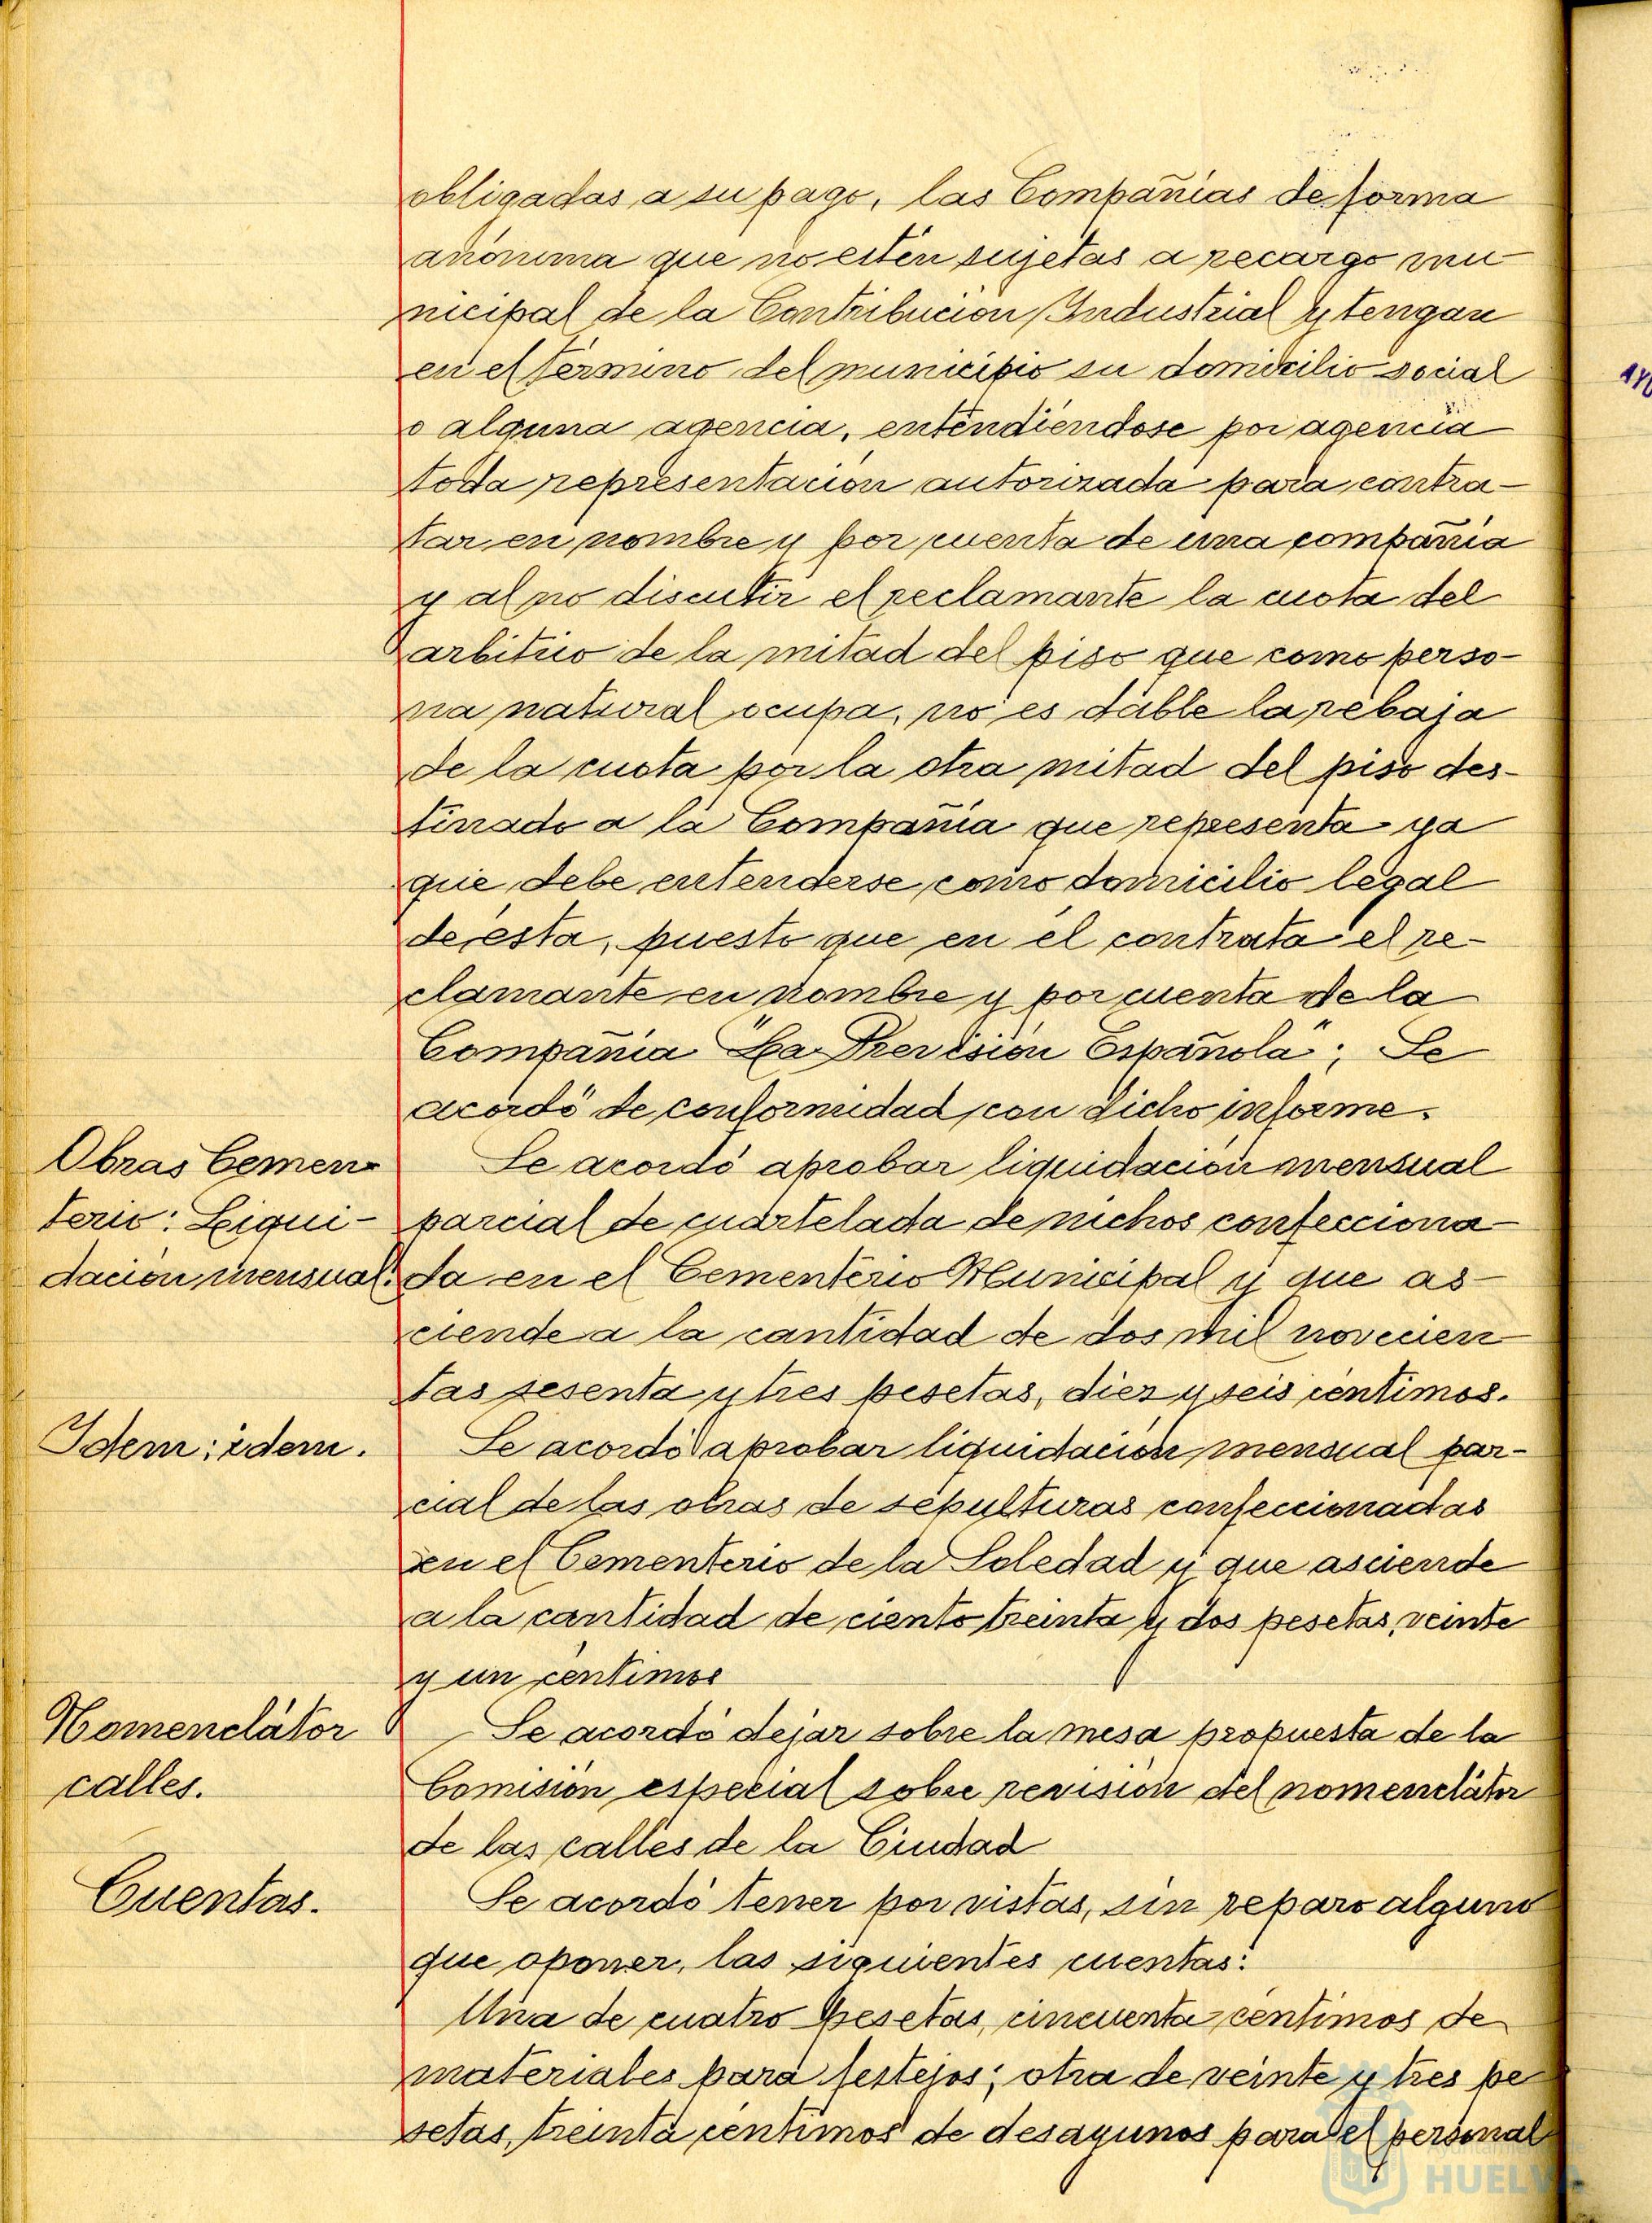 obligadas a su pago, las Compañias de forma
anónima que no estén sujetas a recargo mu
nicipal de la Contribución Industrial y tengan
en el término del municipio su domicilio social
o alguna agencia, enténdiéndose por agencia
toda representación autorizada para contra-
tar en nombre y por cuenta de una compañia
y al no discutir el reclamante la cuota del
arbitrio de la mitad del piso que como perso-
na natural ocupa, no es dable la rebaja
de la cuota por la otra mitad del piso des-
tinado a la Compañia que representa ya
que debe entenderse como domicilio legal
de ésta, puesto que en él contrata el re-
clamante en nombre y por cuenta de la
Compañia "La Previsión Española"; Se
acordó de conformidad con dicho informe.
Obras Cemen-
terio: Liqui-
dación mensual.
Se acordó aprobar liquidación mensual
parcial de cuartelada de nichos confecciona-
da en el Cementerio Municipal y que as-
ciende a la cantidad de dos mil novecien
tas sesenta y tres pesetas, diez y seis céntimos.
Idem: idem.
Se acordó aprobar liquidación mensual par-
cial de las obras de sepulturas confeccionadas
en el Cementerio de la Soledad y que asciende
a la cantidad de ciento treinta y dos pesetas, veinte
y un céntimos
Nomenclátor
calles.
Se acordó dejar sobre la mesa propuesta de la
Comisión especial sobre revisión del nomenclátor
de las calles de la Ciudad
Cuentas.
Se acordó tener por vistas, sin reparo alguno
que oponer, las siguientes cuentas:
Una de cuatro pesetas, cincuenta céntimos de
materiales para festejos; otra de veinte y tres pe
setas, treinta céntimos de desayunos para el personal
HUELVA